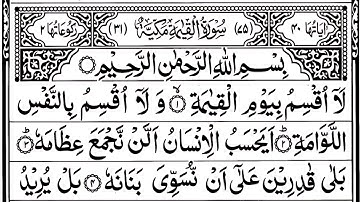 اٰیَاتُهَا ۴۰ (۷۵) سُوْرَةُ الْقِيٰمَةِ مَكِّيَّةٌ (۳۱) رُكُوْعَاتُهَا ۲
بِسْمِ اللّٰهِ الرَّحْمٰنِ الرَّحِيْمِ
لَاۤ اُقْسِمُ بِيَوْمِ الْقِيٰمَةِ ۙ۱ وَ لَاۤ اُقْسِمُ بِالنَّفْسِ
اللَّوَّامَةِ ؕ۲ اَيَحْسَبُ الْاِنْسَانُ اَلَّنْ نَّجْمَعَ عِظَامَهٗ ؕ۳
بَلٰى قٰدِرِيْنَ عَلٰۤى اَنْ نُّسَوِّيَ بَنَانَهٗ ۴ بَلْ يُرِيْدُ